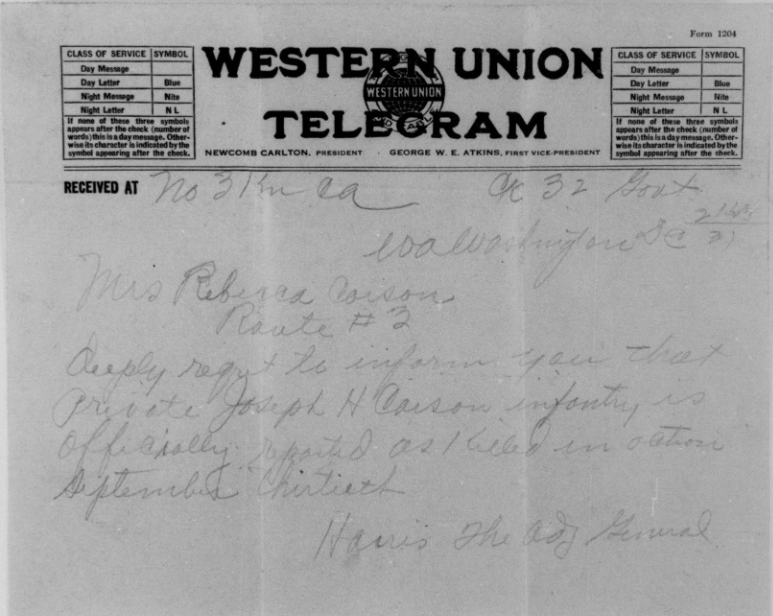 Form 1204
CLASS OF SERVICE SYMBOL
Day Message
Day Letter Blue
Night Message Nite
Night Letter N L
If none of these three symbols
appears after the check (number of
words) this is a day message. Other-
wise its character is indicated by the
symbol appearing after the check.
WESTERN UNION
WESTERN UNION
TELEGRAM
NEWCOMB CARLTON, PRESIDENT GEORGE W. E. ATKINS, FIRST VICE-PRESIDENT
CLASS OF SERVICE SYMBOL
Day Message
Day Letter Blue
Night Message Nite
Night Letter N L
If none of these three symbols
appears after the check (number of
words) this is a day message. Other-
wise its character is indicated by the
symbol appearing after the check.
RECEIVED AT No 3 Kn Ca Ck 32 Govt
Washington DC
Mrs Rebecca Coison
Route # 2
deeply regret to inform you that
Private Joseph H Coison infantry is
officially reported as killed in action
September thirtieth
Harris The Adj General